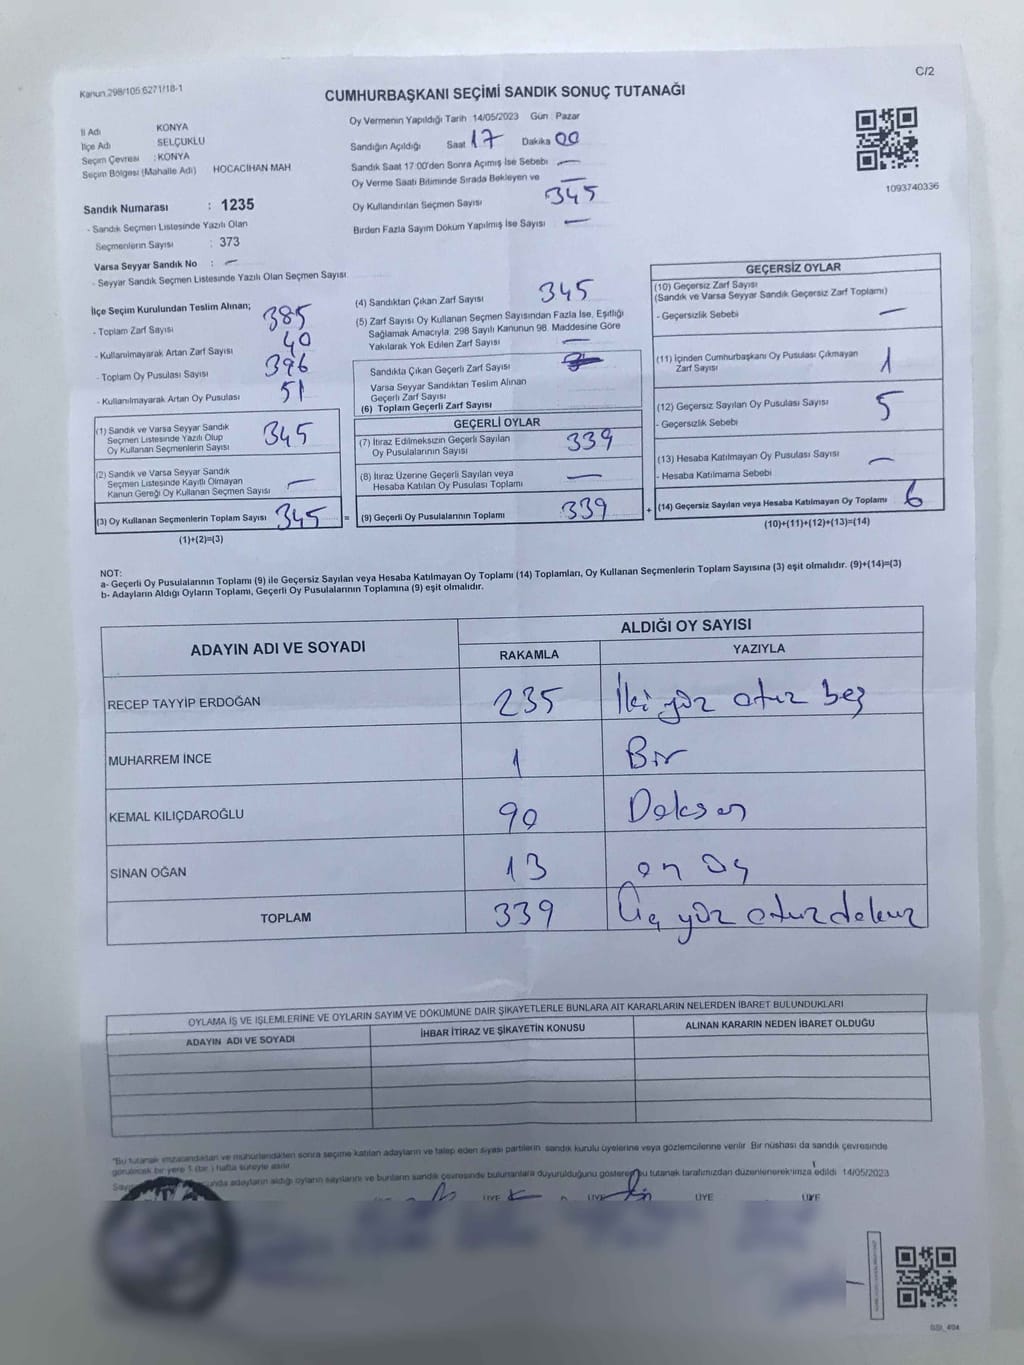 Kanun.298/105.6271/18-1
C/2
CUMHURBAŞKANI SEÇİMİ SANDIK SONUÇ TUTANAĞI
İl Adı KONYA
İlçe Adı SELÇUKLU
Seçim Çevresi : KONYA
Seçim Bölgesi (Mahalle Adı) HOCACİHAN MAH
Sandık Numarası : 1235
- Sandık Seçmen Listesinde Yazılı Olan
Seçmenlerin Sayısı : 373
Varsa Seyyar Sandık No : —
- Seyyar Sandık Seçmen Listesinde Yazılı Olan Seçmen Sayısı
Oy Vermenin Yapıldığı Tarih 14/05/2023 Gün : Pazar
Sandığın Açıldığı Saat 17 Dakika 00
Sandık Saat 17:00'den Sonra Açımış İse Sebebi —
Oy Verme Saati Bitiminde Sırada Bekleyen ve —
Oy Kullandırılan Seçmen Sayısı 345
Birden Fazla Sayım Döküm Yapılmış İse Sayısı —
1093740336
İlçe Seçim Kurulundan Teslim Alınan;
- Toplam Zarf Sayısı 385
- Kullanılmayarak Artan Zarf Sayısı 40
- Toplam Oy Pusulası Sayısı 396
- Kullanılmayarak Artan Oy Pusulası 51
(1) Sandık ve Varsa Seyyar Sandık
Seçmen Listesinde Yazılı Olup
Oy Kullanan Seçmenlerin Sayısı 345
(2) Sandık ve Varsa Seyyar Sandık
Seçmen Listesinde Kayıtlı Olmayan
Kanun Gereği Oy Kullanan Seçmen Sayısı —
(3) Oy Kullanan Seçmenlerin Toplam Sayısı 345 =
(1)+(2)=(3)
(4) Sandıktan Çıkan Zarf Sayısı 345
(5) Zarf Sayısı Oy Kullanan Seçmen Sayısından Fazla İse, Eşitliği
Sağlamak Amacıyla, 298 Sayılı Kanunun 98. Maddesine Göre
Yakılarak Yok Edilen Zarf Sayısı —
Sandıkta Çıkan Geçerli Zarf Sayısı
Varsa Seyyar Sandıktan Teslim Alınan
Geçerli Zarf Sayısı
(6) Toplam Geçerli Zarf Sayısı
GEÇERLİ OYLAR
(7) İtiraz Edilmeksizin Geçerli Sayılan
Oy Pusulalarının Sayısı 339
(8) İtiraz Üzerine Geçerli Sayılan veya
Hesaba Katılan Oy Pusulası Toplamı —
(9) Geçerli Oy Pusulalarının Toplamı 339 +
GEÇERSİZ OYLAR
(10) Geçersiz Zarf Sayısı
(Sandık ve Varsa Seyyar Sandık Geçersiz Zarf Toplamı)
- Geçersizlik Sebebi —
(11) İçinden Cumhurbaşkanı Oy Pusulası Çıkmayan
Zarf Sayısı 1
(12) Geçersiz Sayılan Oy Pusulası Sayısı 5
- Geçersizlik Sebebi
(13) Hesaba Katılmayan Oy Pusulası Sayısı —
- Hesaba Katılmama Sebebi
(14) Geçersiz Sayılan veya Hesaba Katılmayan Oy Toplamı 6
(10)+(11)+(12)+(13)=(14)
NOT:
a- Geçerli Oy Pusulalarının Toplamı (9) ile Geçersiz Sayılan veya Hesaba Katılmayan Oy Toplamı (14) Toplamları, Oy Kullanan Seçmenlerin Toplam Sayısına (3) eşit olmalıdır. (9)+(14)=(3)
b- Adayların Aldığı Oyların Toplamı, Geçerli Oy Pusulalarının Toplamına (9) eşit olmalıdır.
ADAYIN ADI VE SOYADI ALDIĞI OY SAYISI
RAKAMLA YAZIYLA
RECEP TAYYİP ERDOĞAN 235 İki yüz otuz beş
MUHARREM İNCE 1 Bir
KEMAL KILIÇDAROĞLU 90 Doksan
SİNAN OĞAN 13 on üç
TOPLAM 339 Üç yüz otuz dokuz
OYLAMA İŞ VE İŞLEMLERİNE VE OYLARIN SAYIM VE DÖKÜMÜNE DAİR ŞİKAYETLERLE BUNLARA AİT KARARLARIN NELERDEN İBARET BULUNDUKLARI
ADAYIN ADI VE SOYADI İHBAR İTİRAZ VE ŞİKAYETİN KONUSU ALINAN KARARIN NEDEN İBARET OLDUĞU
*Bu tutanak imzalandıktan ve mühürlendikten sonra seçime katılan adayların ve talep eden siyasi partilerin sandık kurulu üyelerine veya gözlemcilerine verilir. Bir nüshası da sandık çevresinde
görülecek bir yere 1 (bir) hafta süreyle asılır.
adayların aldığı oyların sayılarını ve bunların sandık çevresinde bulunanlara duyurulduğunu gösteren bu tutanak tarafımızdan düzenlenerek imza edildi 14/05/2023
ÜYE ÜYE ÜYE ÜYE